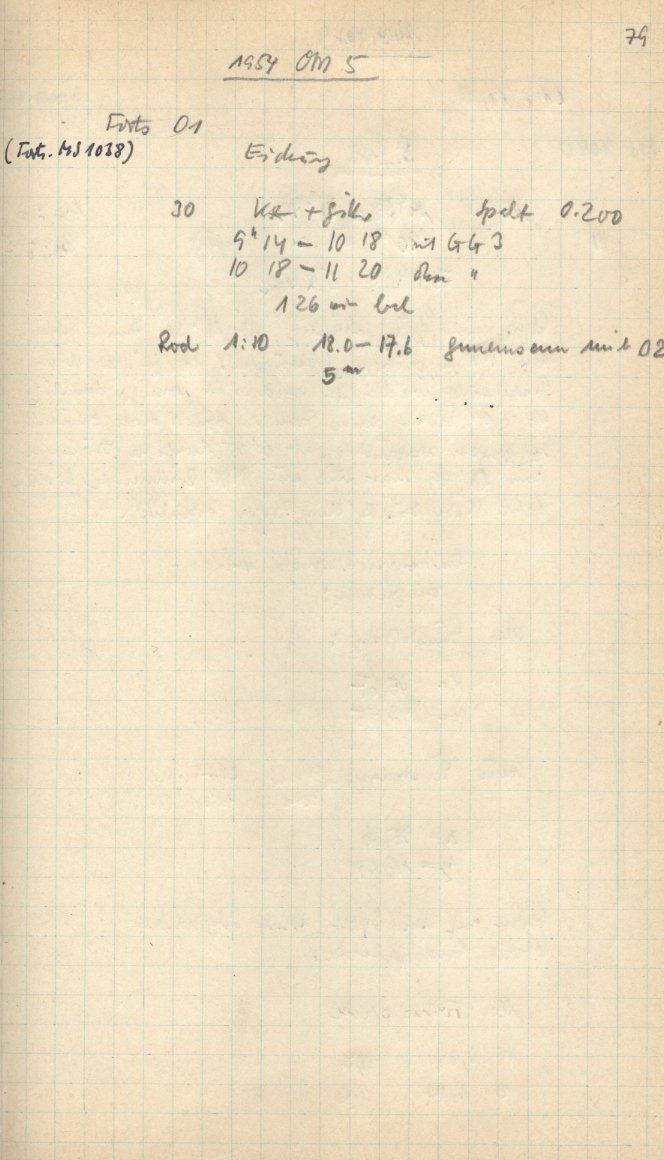 79
1954 OM 5
Forts 01
(Forts. MS 1038)
Eichung
30 Spalt 0.200
9h 14 – 10 18 mit GG 3
10 18 – 11 20 ohne "
126 min bel
Rod 1:10 18.0 – 17.6 gemeinsam mit 02
5m